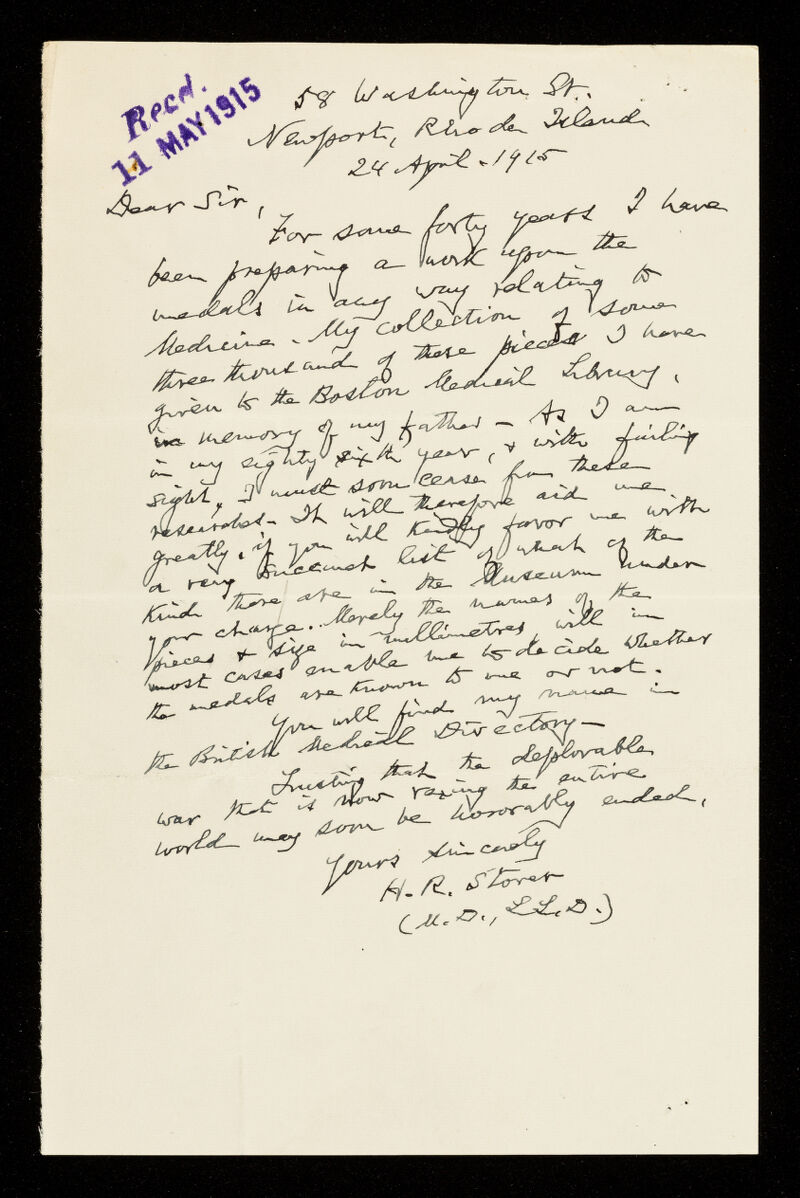 Recd.
11 MAY 1915
58 Washington St.
Newport, Rhode Island
24 April. 1915
Dear Sir,
For some forty years I have
been preparing a work upon the
medals in any way relating to
Medicine. My collection of some
three thousand of these pieces I have
given to the Boston Medical Library,
in memory of my father - As I am
in my eighty sixth year, & with failing
sight, I must soon cease from these
researches. It will therefore aid me
greatly, if you will kindly favor me with
a very succinct list of what of the
kind there are in the Museum under
your charge. Merely the names of the
pieces & size in millimetres, will in
most cases enable me to decide whether
the medals are known to me or not.
You will find my name in
the British Medical Directory -
Trusting that the deplorable
war that is now the entire
world may soon be honorably ended,
Yours sincerely
H. R. Storer
(M.D., LL.D.)